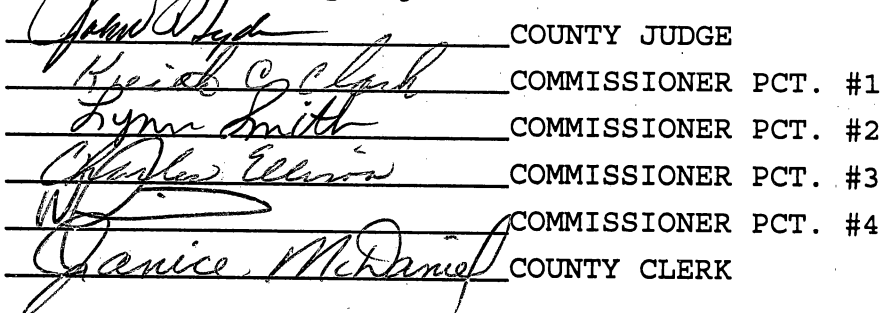 John COUNTY JUDGE
C Clark COMMISSIONER PCT. #1
Lynn Smith COMMISSIONER PCT. #2
Charles Ellison COMMISSIONER PCT. #3
COMMISSIONER PCT. #4
Janice McDaniel COUNTY CLERK